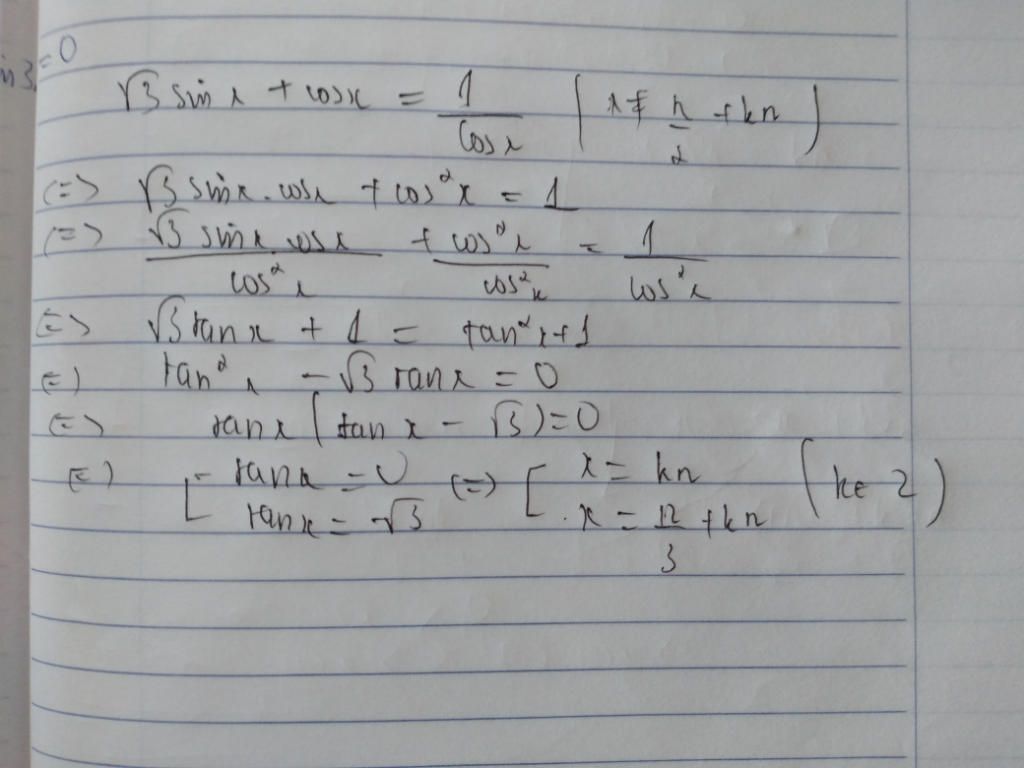 = 0
in 3
√3 sin x + cos x = 1/cos x (x ≠ π/2 + kπ)
(=) √3 sin x . cos x + cos² x = 1
(=) √3 sin x . cos x / cos² x + cos² x / cos² x = 1 / cos² x
(=) √3 tan x + 1 = tan² x + 1
(=) tan² x - √3 tan x = 0
(=) tan x (tan x - √3) = 0
(=) [ tan x = 0 (=) [ x = kπ (k ∈ Z)
tan x = √3 x = π/3 + kπ